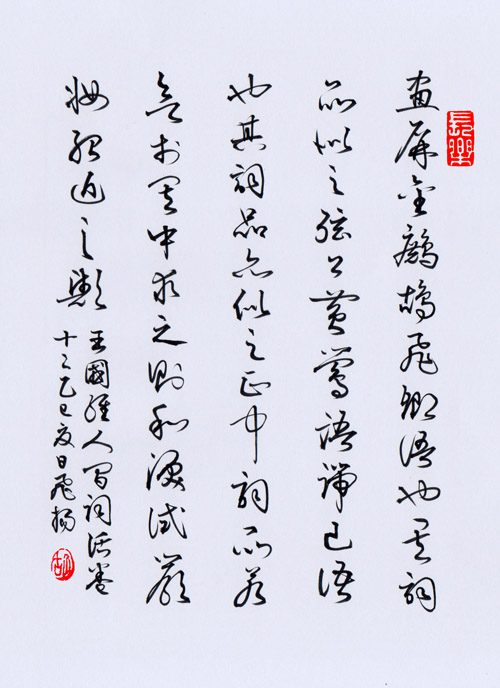 長樂
畫屏金鷓鴣飛卿語也其詞
品似之弦上黃鶯語端己語
也其詞品亦似之正中詞品若
欲於其中求之則和淚試嚴
妝殆近之歟
王國維人間詞話卷
十二乙巳夏日飛揚